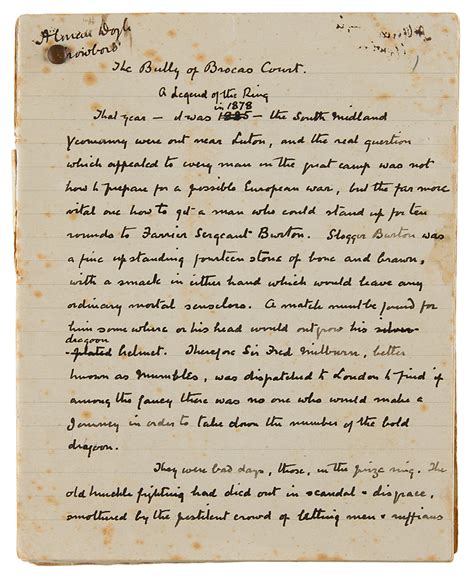 A Conan Doyle
Crowboro'
The Bully of Brocas Court.
A Legend of the Ring
in 1878
That year — it was 1885 — the South Midland
Yeomanry were out near Luton, and the real question
which appealed to every man in the great camp was not
how to prepare for a possible European war, but the far more
vital one how to get a man who could stand up for ten
rounds to Farrier Sergeant Burton. Slogger Burton was
a fine upstanding fourteen stone of bone and brawn,
with a smack in either hand which would leave any
ordinary mortal senseless. A match must be found for
him somewhere or his head would outgrow his silver-
dragoon
plated helmet. Therefore Sir Fred Milburn, better
known as Mumbles, was dispatched to London to find if
among the fancy there was no one who would make a
Journey in order to take down the number of the bold
dragoon.
They were bad days, those, in the prize ring. The
old knuckle fighting had died out in scandal & disgrace,
smothered by the pestilent crowd of betting men & ruffians